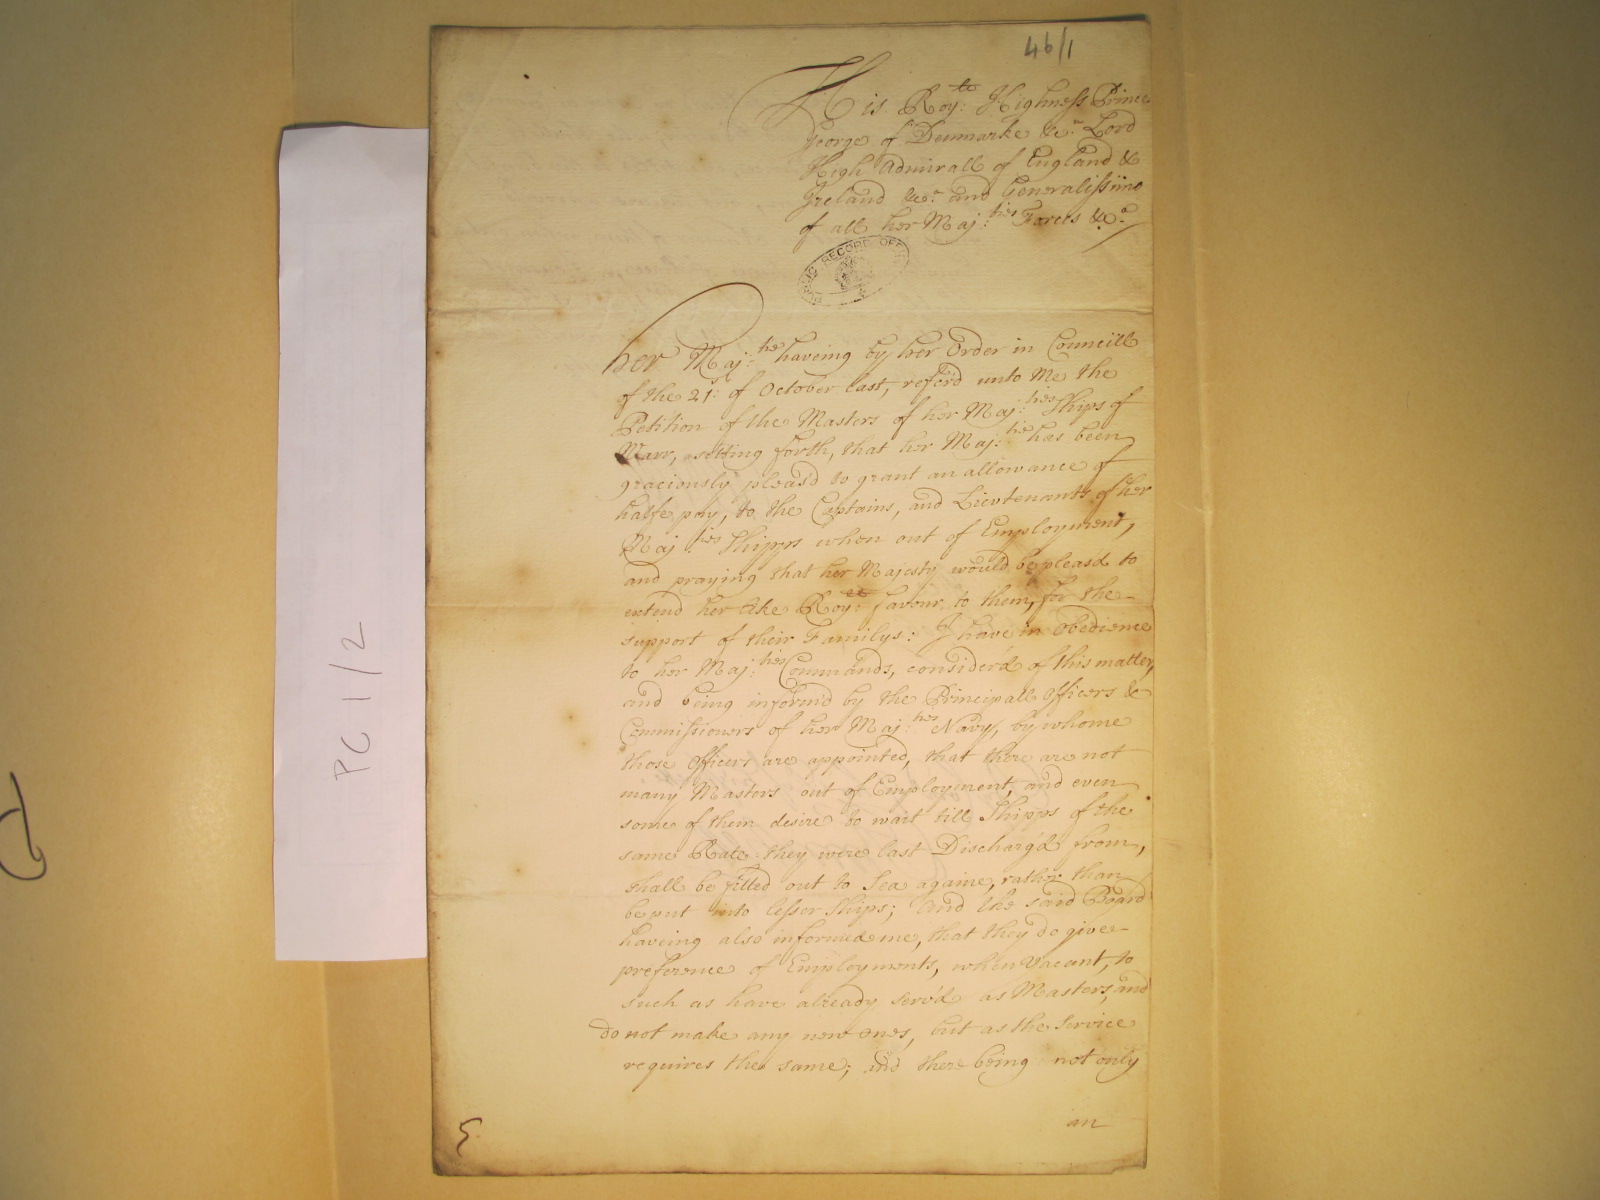 46/1
His Roy:ll Highness Prince
George of Denmarke &c.a Lord
High Admirall of England &
Ireland &c.a and Generalissimo
of all her Maj:ties Forces &c.a
PUBLIC RECORD OFFICE
her Maj:ties haveing by her Order in Councill
of the 21: of October last, referd unto Me the
Petition of the Masters of her Maj:ties Ships of
Warr, setting forth, that her Maj:tie has been
graciously pleas'd to grant an allowance of
halfe pay, to the Captains, and Lieutenants of her
Maj:ties Shipps when out of Employment,
and praying that her Majesty would be pleas'd to
extend her like Roy:ll favour to them, for the
support of their Familys: I have in Obedience
to her Maj:ties Commands, consider'd of this matter,
and being inform'd by the Principall Officers &
Commissioners of her Maj:ties Navy, by whome
those Officers are appointed, that there are not
many Masters out of Employment, and even
some of them desire to wait till Shipps of the
same Rate they were last Discharg'd from,
shall be fitted out to Sea againe, rather than
be put into lesser Ships; And the said Board
haveing also informed me, that they do give
preference of Employments, when Vacant, to
such as have already serv'd as Masters, and
do not make any new ones, but as the Service
requires the same; and there being not only
an
PC 1/2